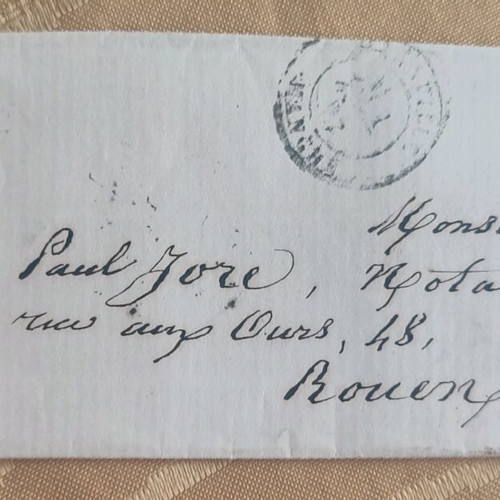 Monsi
Paul Jore, Nota
rue aux Ours, 48,
Rouen